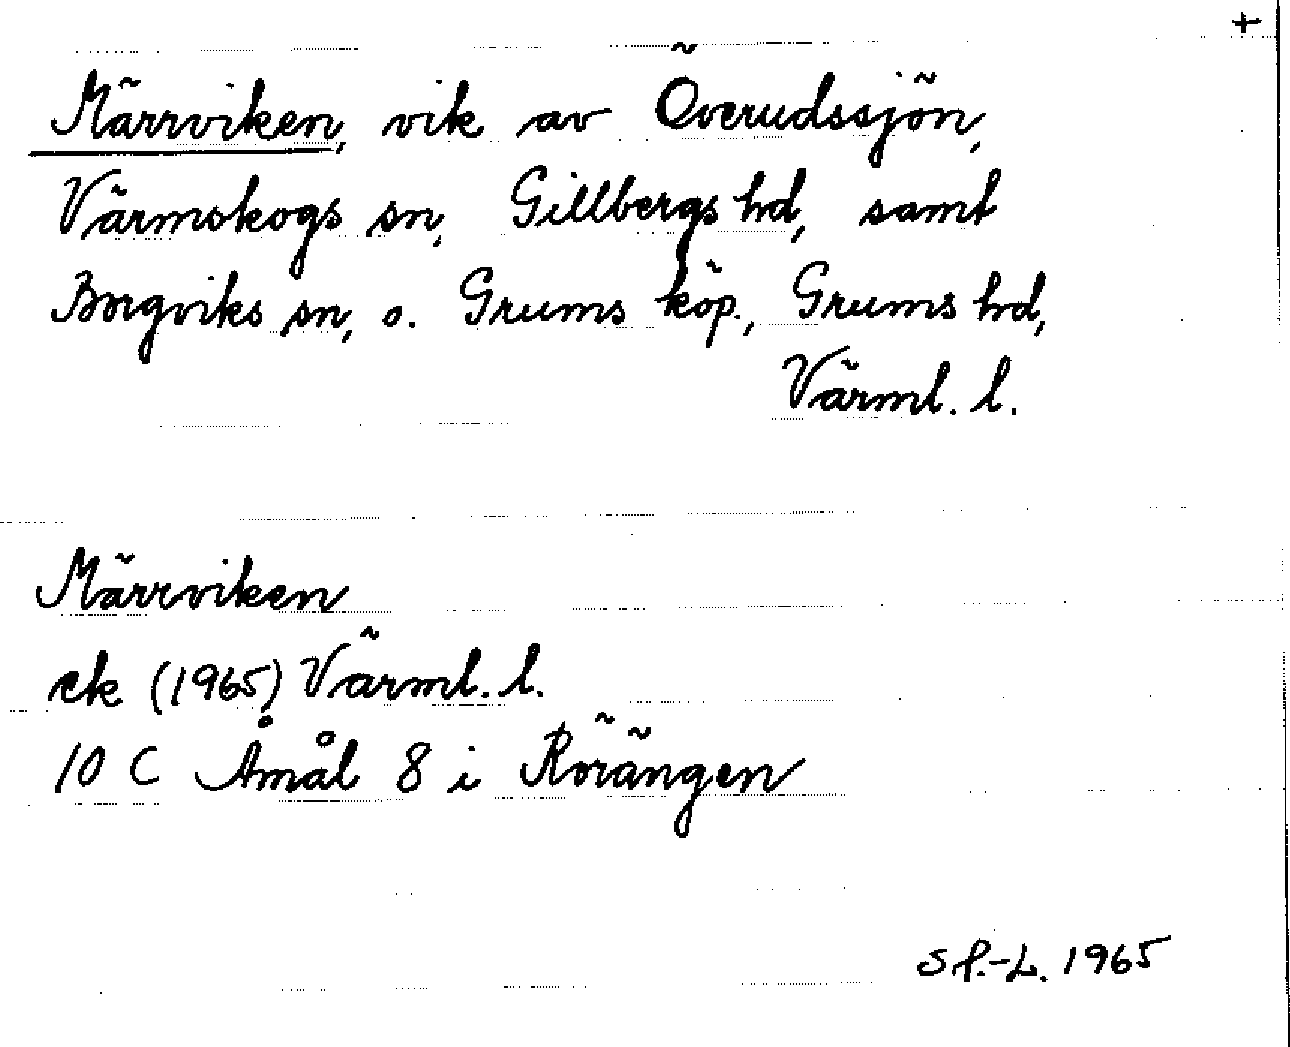 +
Märrviken, vik av Överudssjön,
Värmskogs sn, Gillbergs hd, samt
Borgviks sn, o. Grums köp., Grums hd,
Värml. l.
Märrviken
ek (1965) Värml. l.
10 C Åmål 8 i Rörängen
S P.-L. 1965